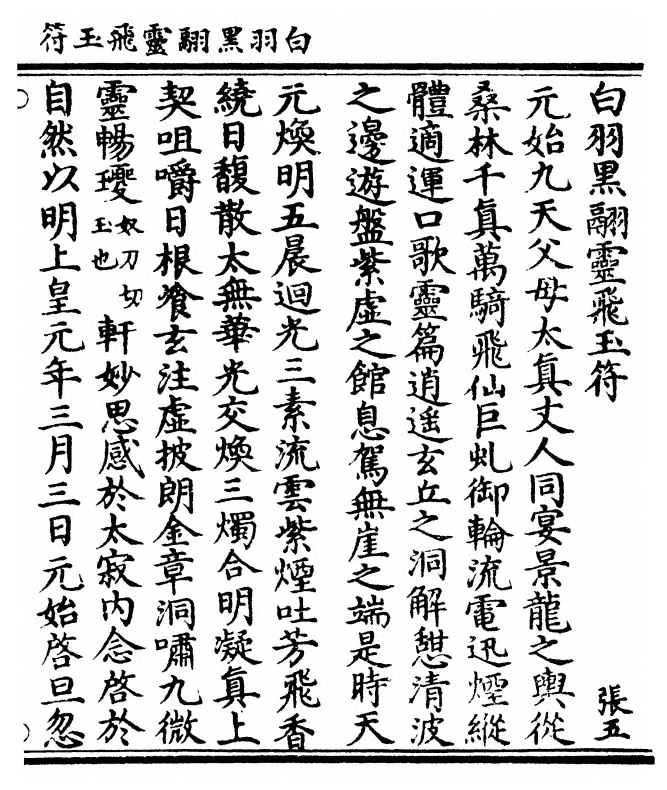 白羽黑翮靈飛玉符
白羽黑翮靈飛玉符
張五
元始九天父母太眞丈人同宴景龍之輿從
桑林千眞萬騎飛仙巨虬御輪流電迅煙縱
體適運口歌靈篇逍遙玄丘之洞解憇清波
之邊遊盤紫虛之館息駕無崖之端是時天
元煥明五晨迴光三素流雲紫煙吐芳飛香
繞日馥散太無華光交煥三燭合明凝眞上
契咀嚼日根飡玄注虛披朗金章洞嘯九微
靈暢㺜奴刀切玉也軒妙思感於太寂內念啓於
自然以明上皇元年三月三日元始啓旦忽